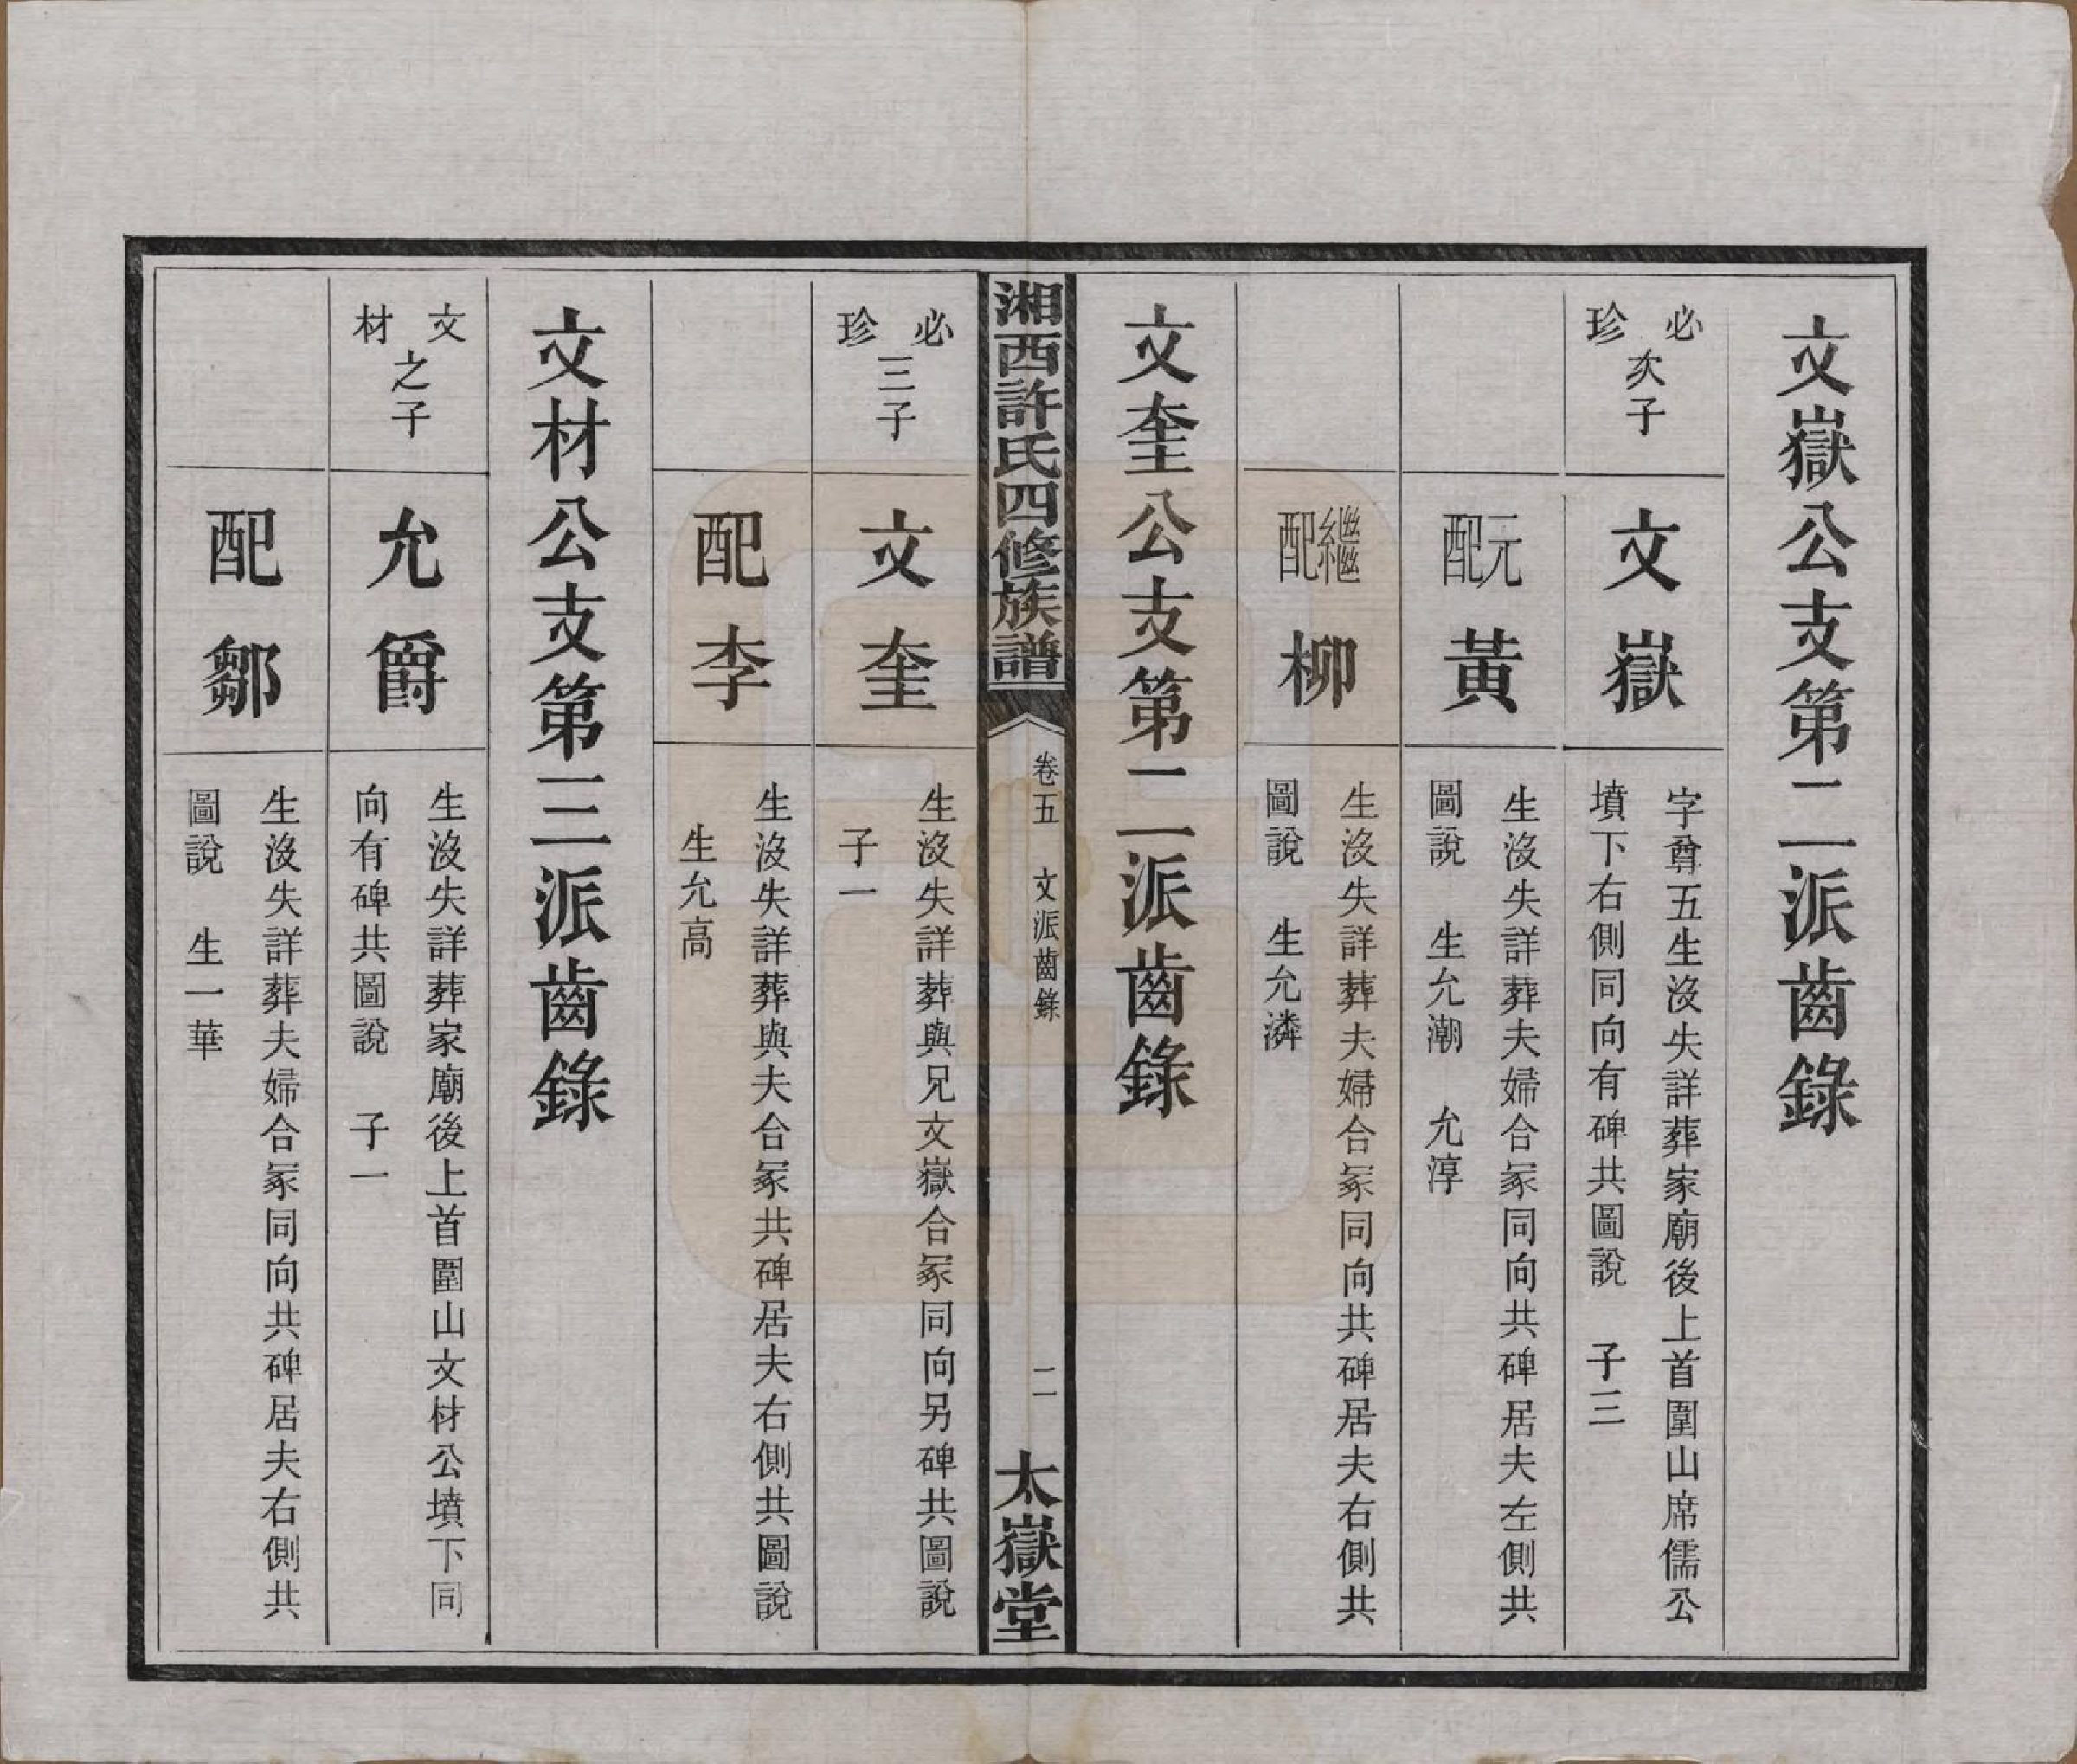 文嶽公支第二派齒錄
必珍次子
文嶽
字尊五生沒失詳葬家廟後上首圍山席儒公
墳下右側同向有碑共圖說　子三
元配黃
生沒失詳葬夫婦合冢同向共碑居夫左側共
圖說　生允潮　允淳
繼配柳
生沒失詳葬夫婦合冢同向共碑居夫右側共
圖說　生允潾
文奎公支第二派齒錄
湘西許氏四修族譜
卷五　文派齒錄
二
太嶽堂
必珍三子
文奎
生沒失詳葬與兄文嶽合冢同向另碑共圖說
子一
配李
生沒失詳葬與夫合冢共碑居夫右側共圖說
生允高
文材公支第三派齒錄
文材之子
允爵
生沒失詳葬家廟後上首圍山文材公墳下同
向有碑共圖說　子一
配鄒
生沒失詳葬夫婦合冢同向共碑居夫右側共
圖說　生一華